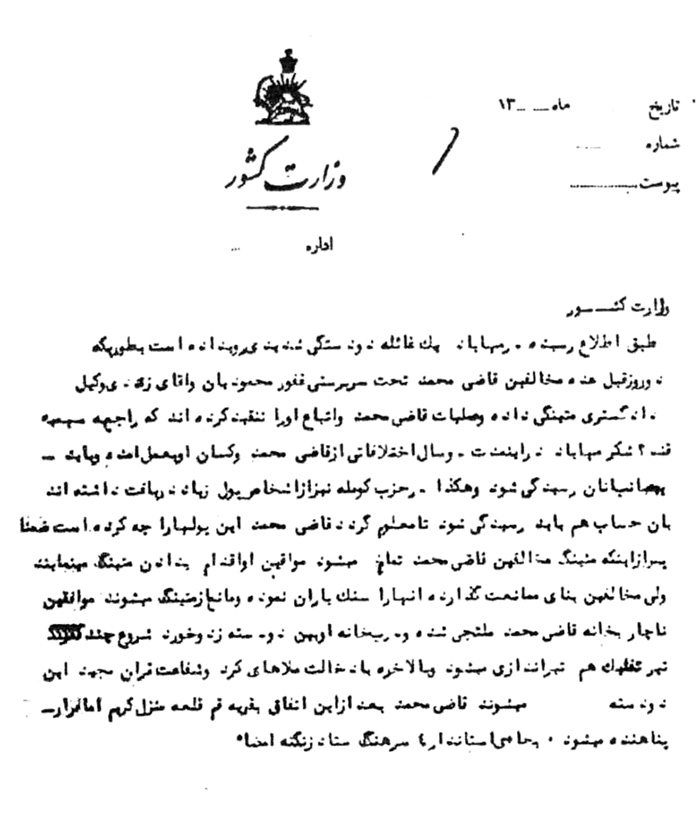 تاریخ ماه ۱۳
شماره
پیوست
وزارت کشور
اداره
وزارت کشور
طبق اطلاع رسیده در مهاباد یك غائله دو دستگی شدیدی رویداده است بطوریکه
دو روز قبل عده مخالفین قاضی محمد تحت سرپرستی غفور محمودیان و اقای زندی وکیل
دادگستری متینگی داده و عملیات قاضی محمد و اتباع اورا تنقید کرده اند که راجع به سهمیه
قند و شکر مهاباد در اینمدت دو سال اختلافاتی از قاضی محمد و کسان او بعمل امده و باید
بحسابشان رسیدگی شود و هکذا در حزب کومله نیز از اشخاص پول زیاد دریافت داشته اند
بان حساب هم باید رسیدگی شود تا معلوم گردد قاضی محمد این پولهارا چه کرده است ضمنا
پس از اینکه متینگ مخالفین قاضی محمد تمام میشود موافقین او اقدام بدادن متینگ مینمایند
ولی مخالفین بنای ممانعت گذارده انهارا سنك باران نموده و مانع از متینگ میشوند موافقین
ناچار بخانه قاضی محمد ملتجی شده و در بیخانه او بین دو دسته زد و خورد شروع چند
تیر تفنگ هم تیراندازی میشود و بالاخره با دخالت ملاهای کرد و شفاعت قران مجید این
دو دسته میشوند قاضی محمد بعد از این اتفاق بقریه قم قلعه منزل کریم اقا
پناهنده میشود ۰ بجای استاندار ٤ سرهنگ ستاد زنگنه امضاء